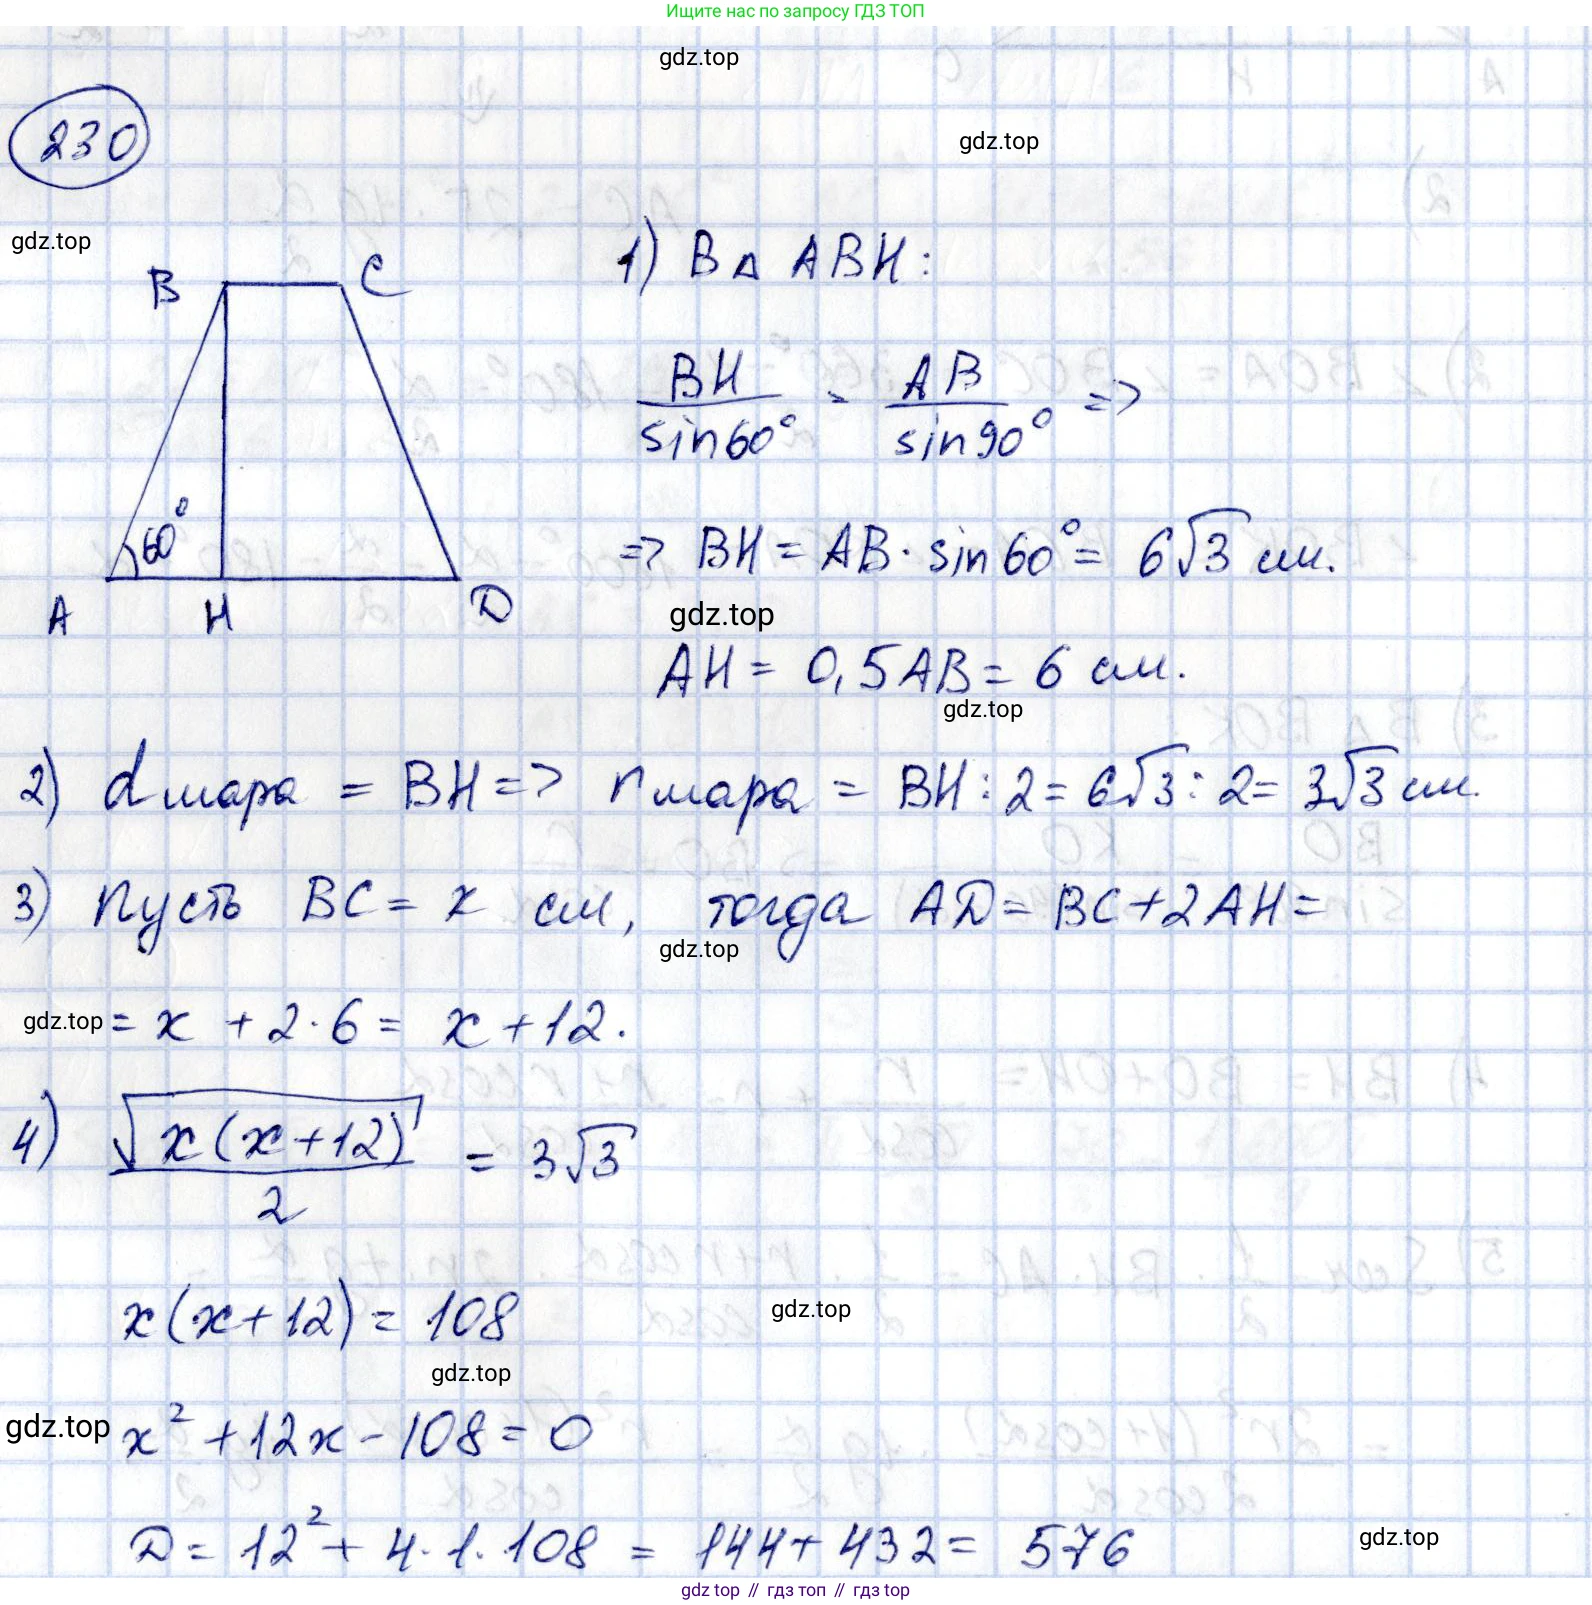 Ищите нас по запросу ГДЗ ТОП
gdz.top
230
gdz.top
gdz.top
B C
60°
A H D
1) В Δ ABH:
BH / sin60° = AB / sin90° =>
=> BH = AB · sin60° = 6√3 см.
gdz.top
AH = 0,5AB = 6 см.
gdz.top
2) d шара = BH => r шара = BH : 2 = 6√3 : 2 = 3√3 см.
3) Пусть BC = x см, тогда AD = BC + 2AH =
gdz.top
gdz.top
= x + 2 · 6 = x + 12.
4) √x(x+12) / 2 = 3√3
x(x+12) = 108
gdz.top
gdz.top
gdz.top
x² + 12x - 108 = 0
D = 12² + 4 · 1 · 108 = 144 + 432 = 576
gdz.top
gdz.top // гдз топ // гдз top